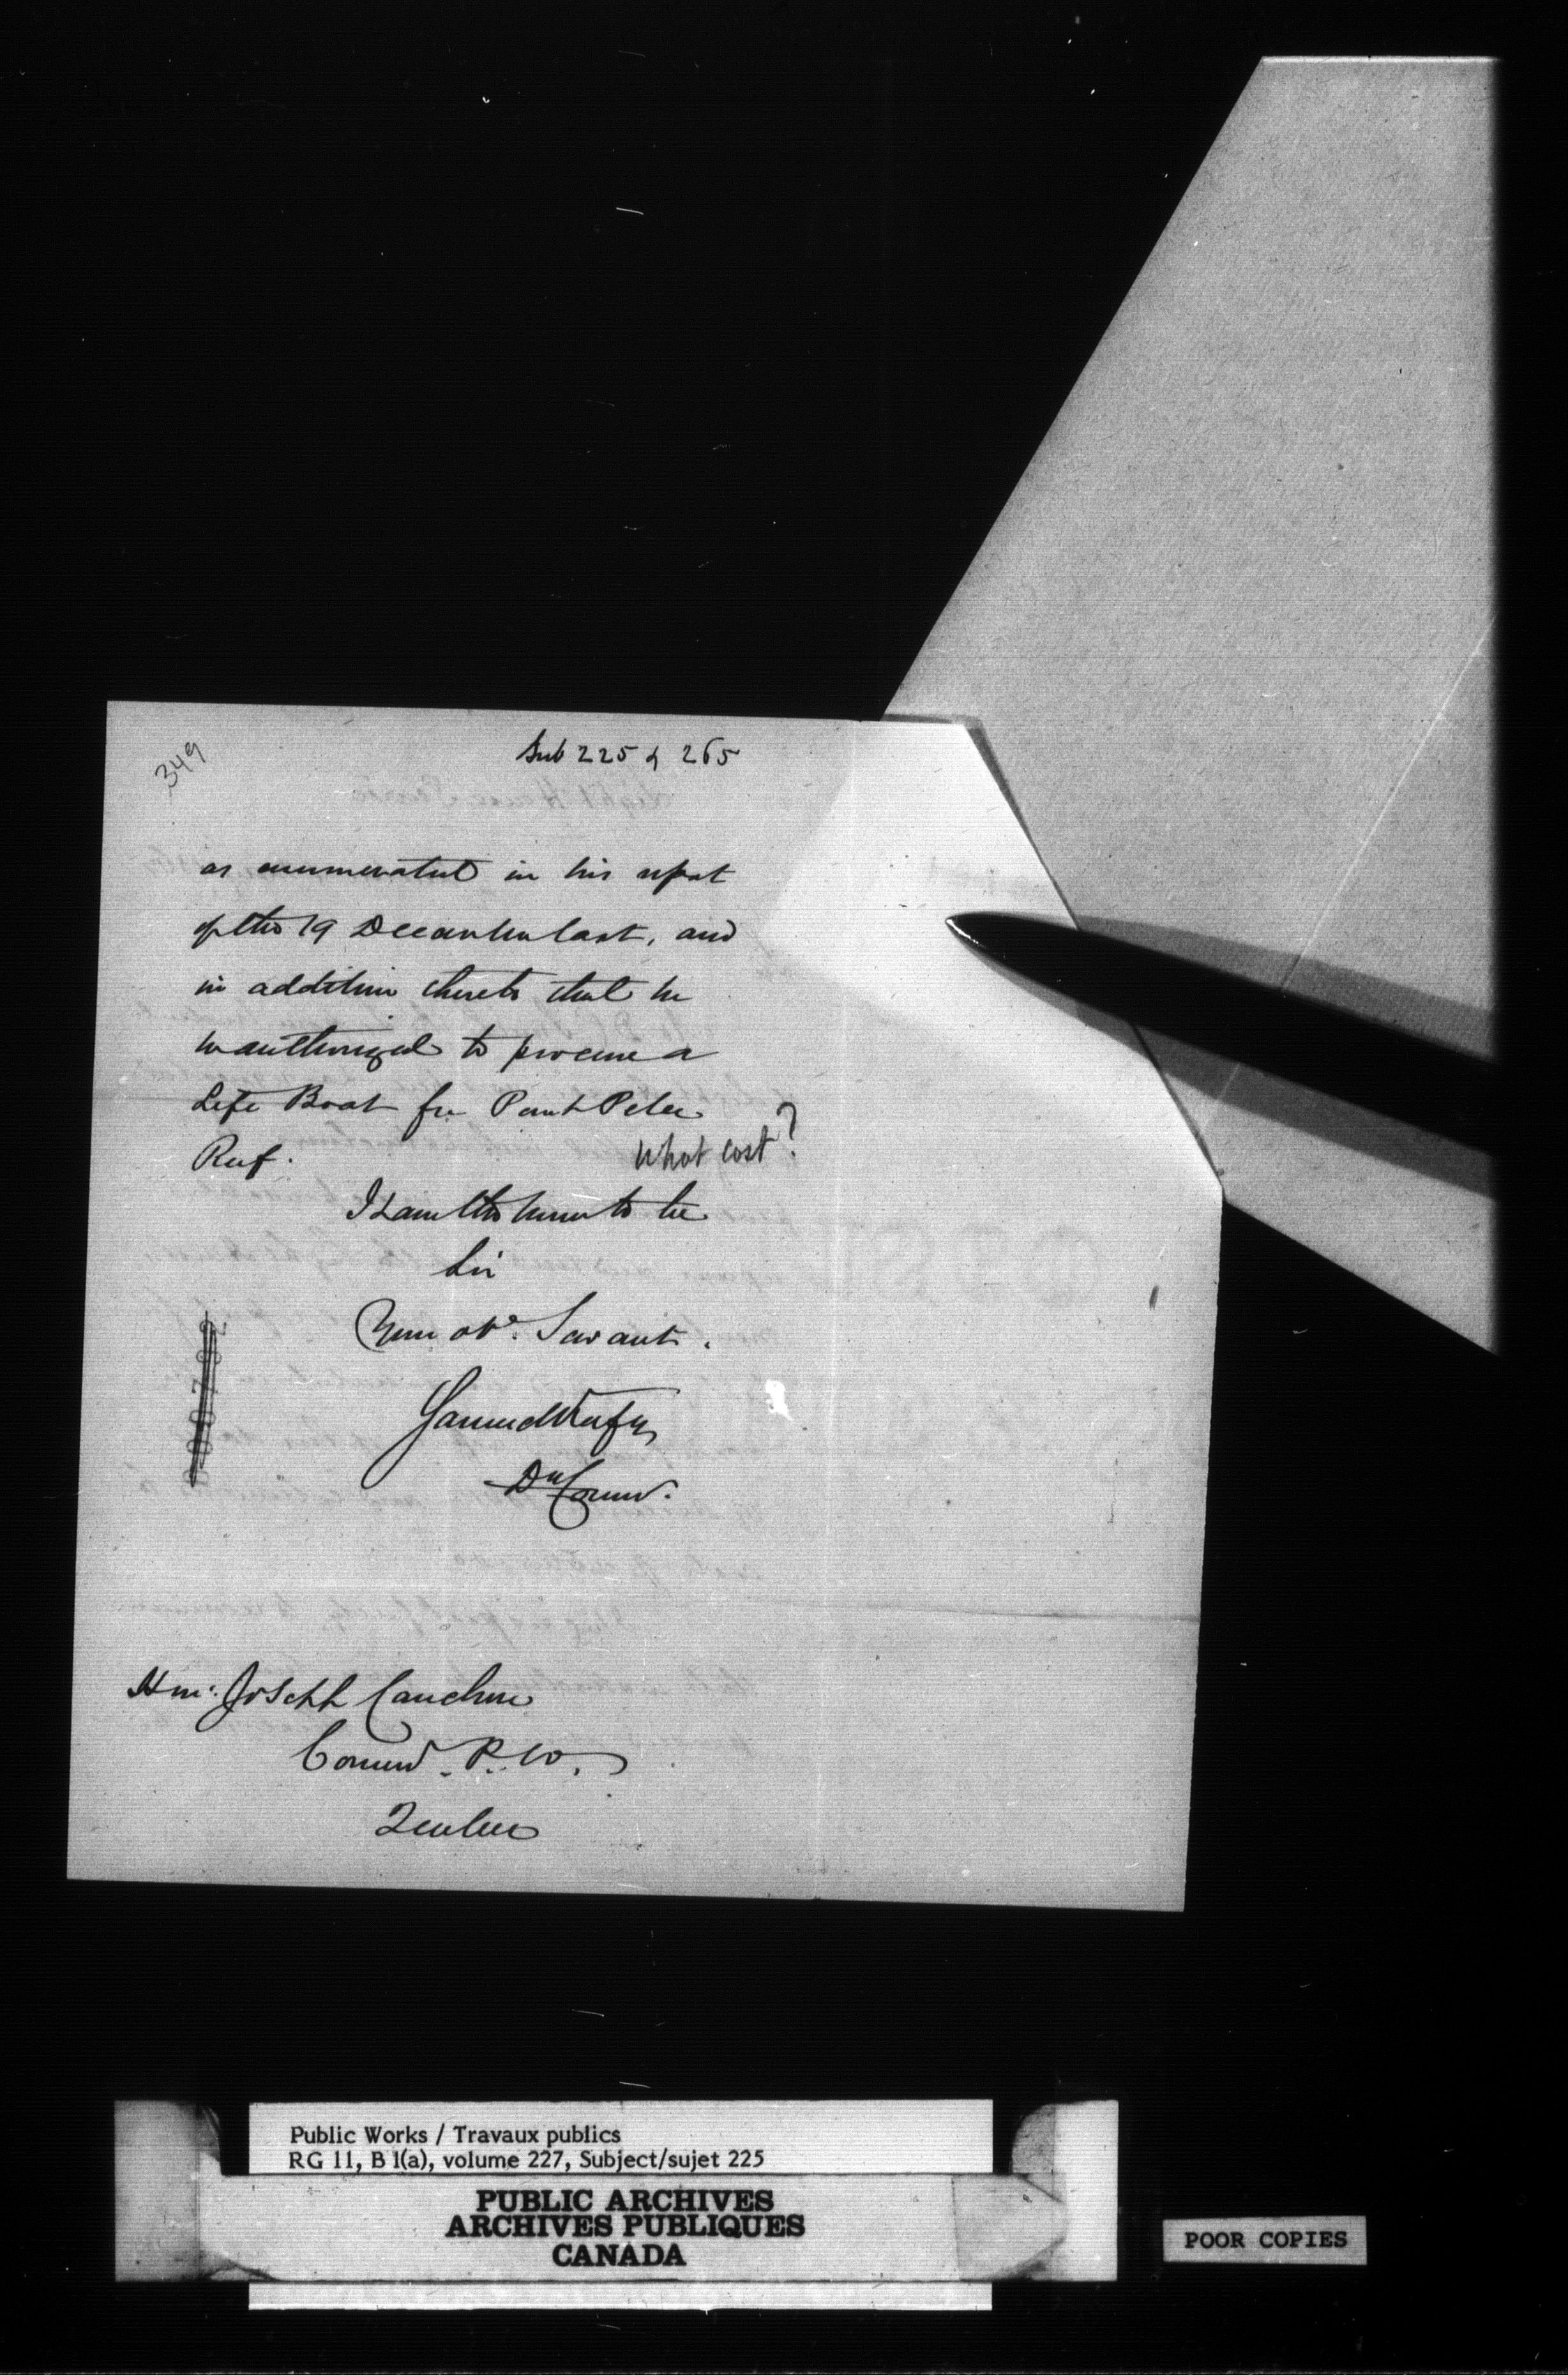 349
Sub 225 & 265
as enumerated in his report
of the 19 December last, and
in addition thereto that he
be authorized to procure a
Life Boat for Point Pelee
Reef.
What cost?
I have the honor to be
Sir
Your obt. Servant.
Samuel Keefer
Dy Commr.
Hon: Joseph Cauchon
Commr. P. W.
Quebec
Public Works / Travaux publics
RG 11, B 1(a), volume 227, Subject/sujet 225
PUBLIC ARCHIVES
ARCHIVES PUBLIQUES
CANADA
POOR COPIES